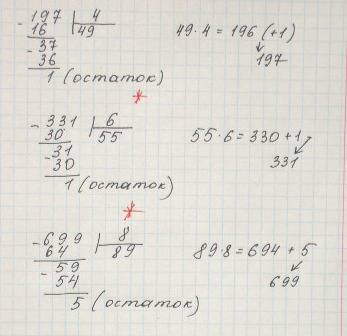 - 197 | 4
16 | 49 49·4 = 196 (+1)
- 37 197
36
1 (остаток)
- 331 | 6
30 | 55 55·6 = 330 + 1
- 31 331
- 30
1 (остаток)
- 699 | 8
64 | 89 89·8 = 694 + 5
- 59 699
54
5 (остаток)